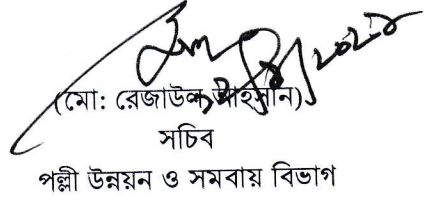 (মো: রেজাউল আহসান)
সচিব
পল্লী উন্নয়ন ও সমবায় বিভাগ